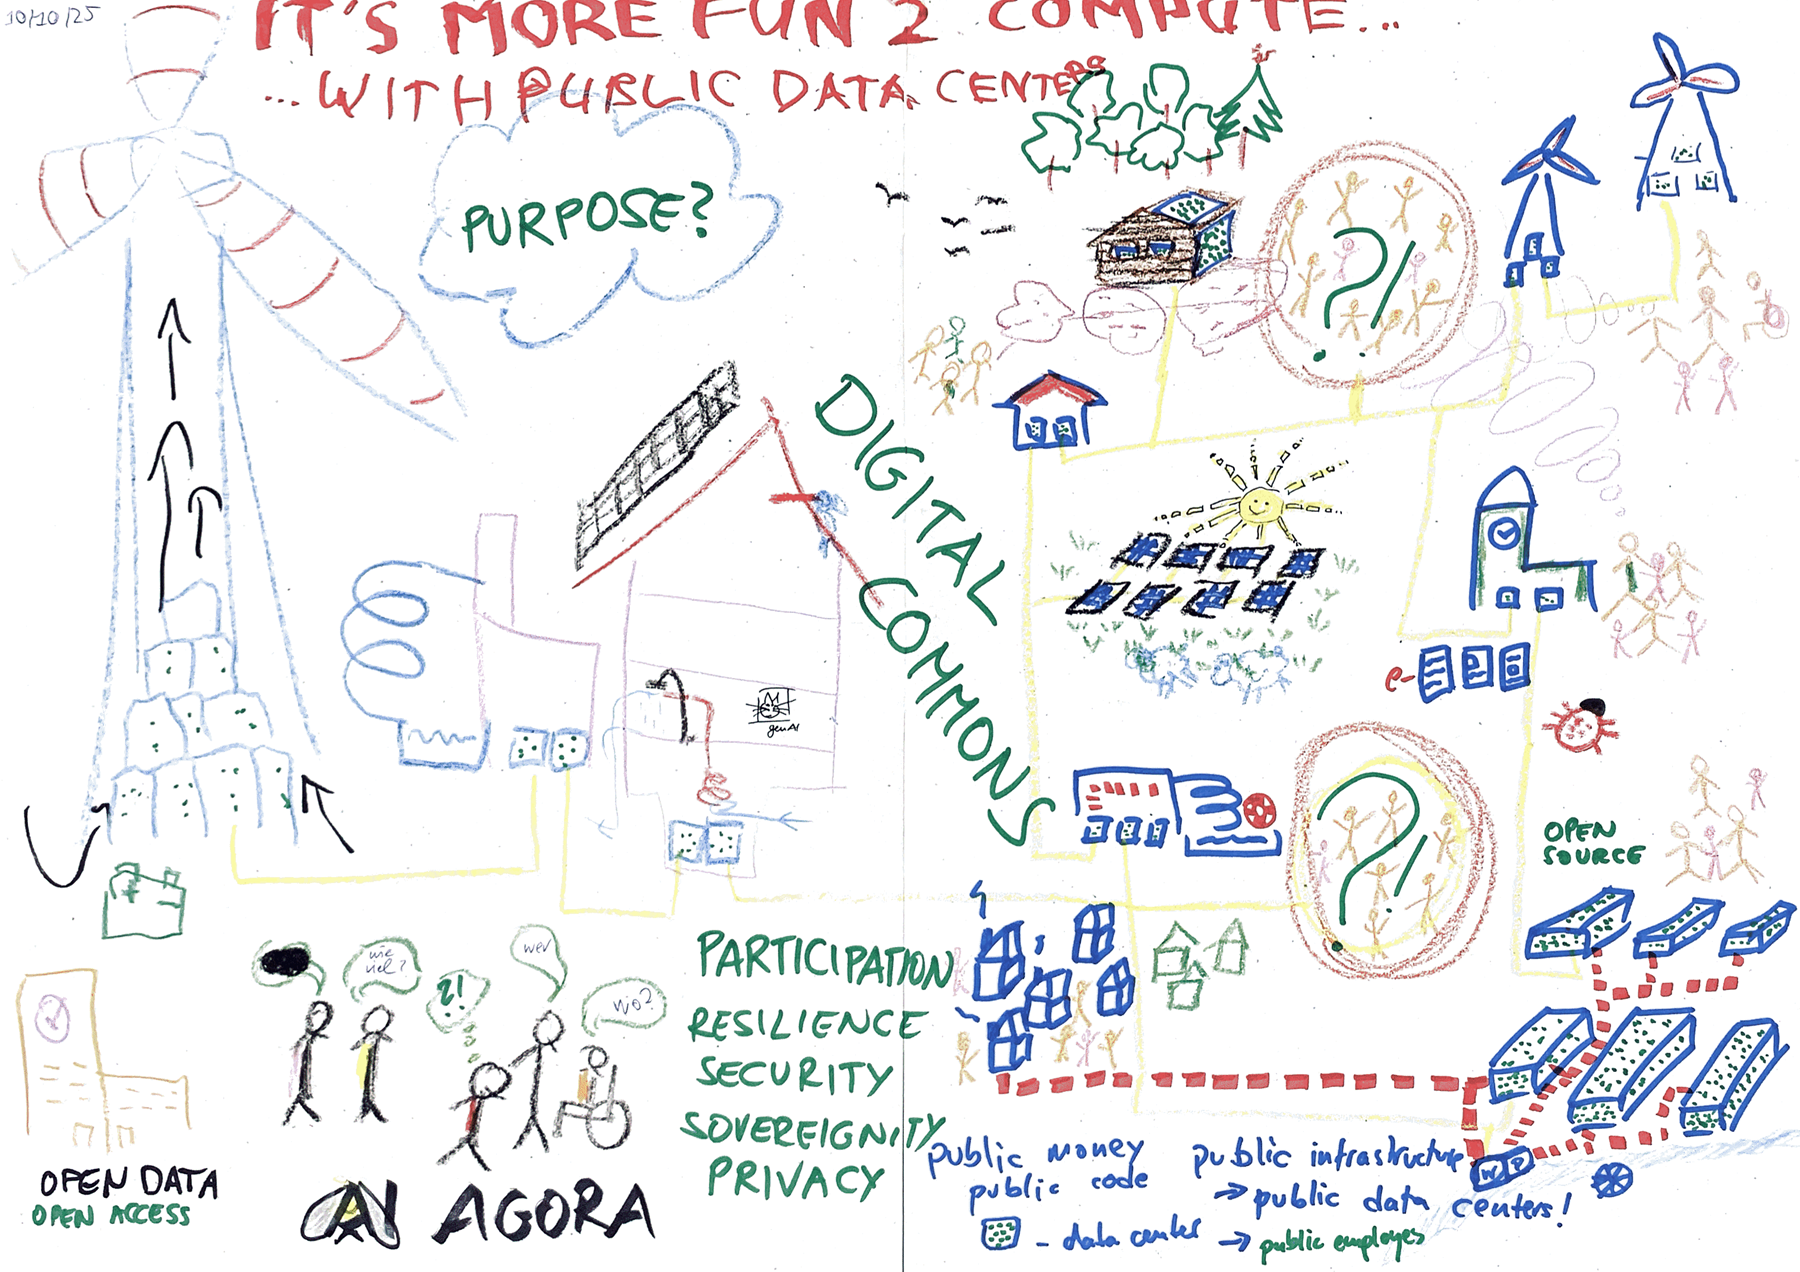 10/10/25
IT'S MORE FUN 2 COMPUTE...
...WITH PUBLIC DATA CENTERS
PURPOSE?
?!
DIGITAL
COMMONS
gen AI
e-
?!
OPEN
SOURCE
wie
viel?
?!
wer
wo?
PARTICIPATION
RESILIENCE
SECURITY
SOVEREIGNITY
PRIVACY
OPEN DATA
OPEN ACCESS
AGORA
public money
public code
public infrastructure
→ public data centers!
WP
- data center → public employes